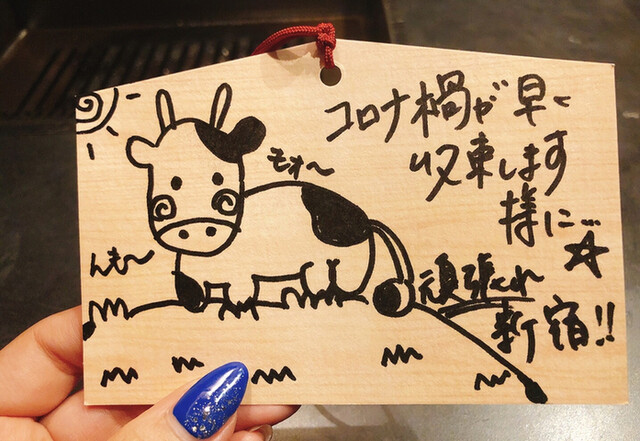 コロナ禍が早く
収束します
様に…☆
頑張れ
新宿!!
モォ〜
んも〜